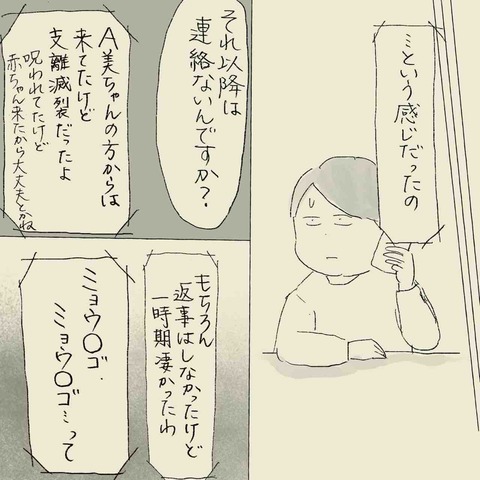 …という感じだったの
それ以降は
連絡ないんですか?
A美ちゃんの方からは
来てたけど
支離滅裂だったよ
呪われてたけど
赤ちゃん来たから大丈夫とかね
もちろん
返事はしなかったけど
一時期凄かったわ
ミョウ〇ゴ.
ミョウ〇ゴ…って